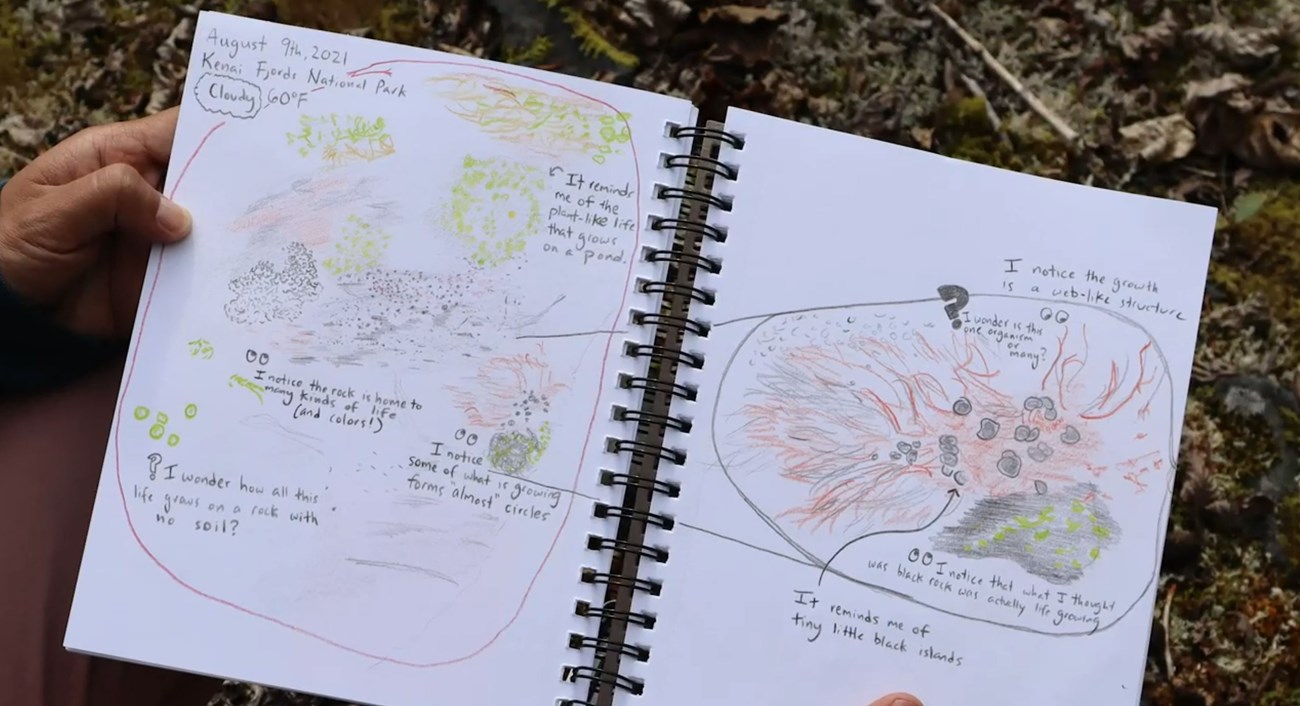 August 9th, 2021
Kenai Fjords National Park
Cloudy 60°F
It reminds
me of the
plant-like life
that grows
on a pond.
I notice the rock is home to
many kinds of life
(and colors!)
I notice
some of what is growing
forms "almost" circles
? I wonder how all this
life grows on a rock with
no soil?
I notice the growth
is a web-like structure
?
I wonder is this
one organism
or
many?
I notice that what I thought
was black rock was actually life growing
It reminds me of
tiny little black islands